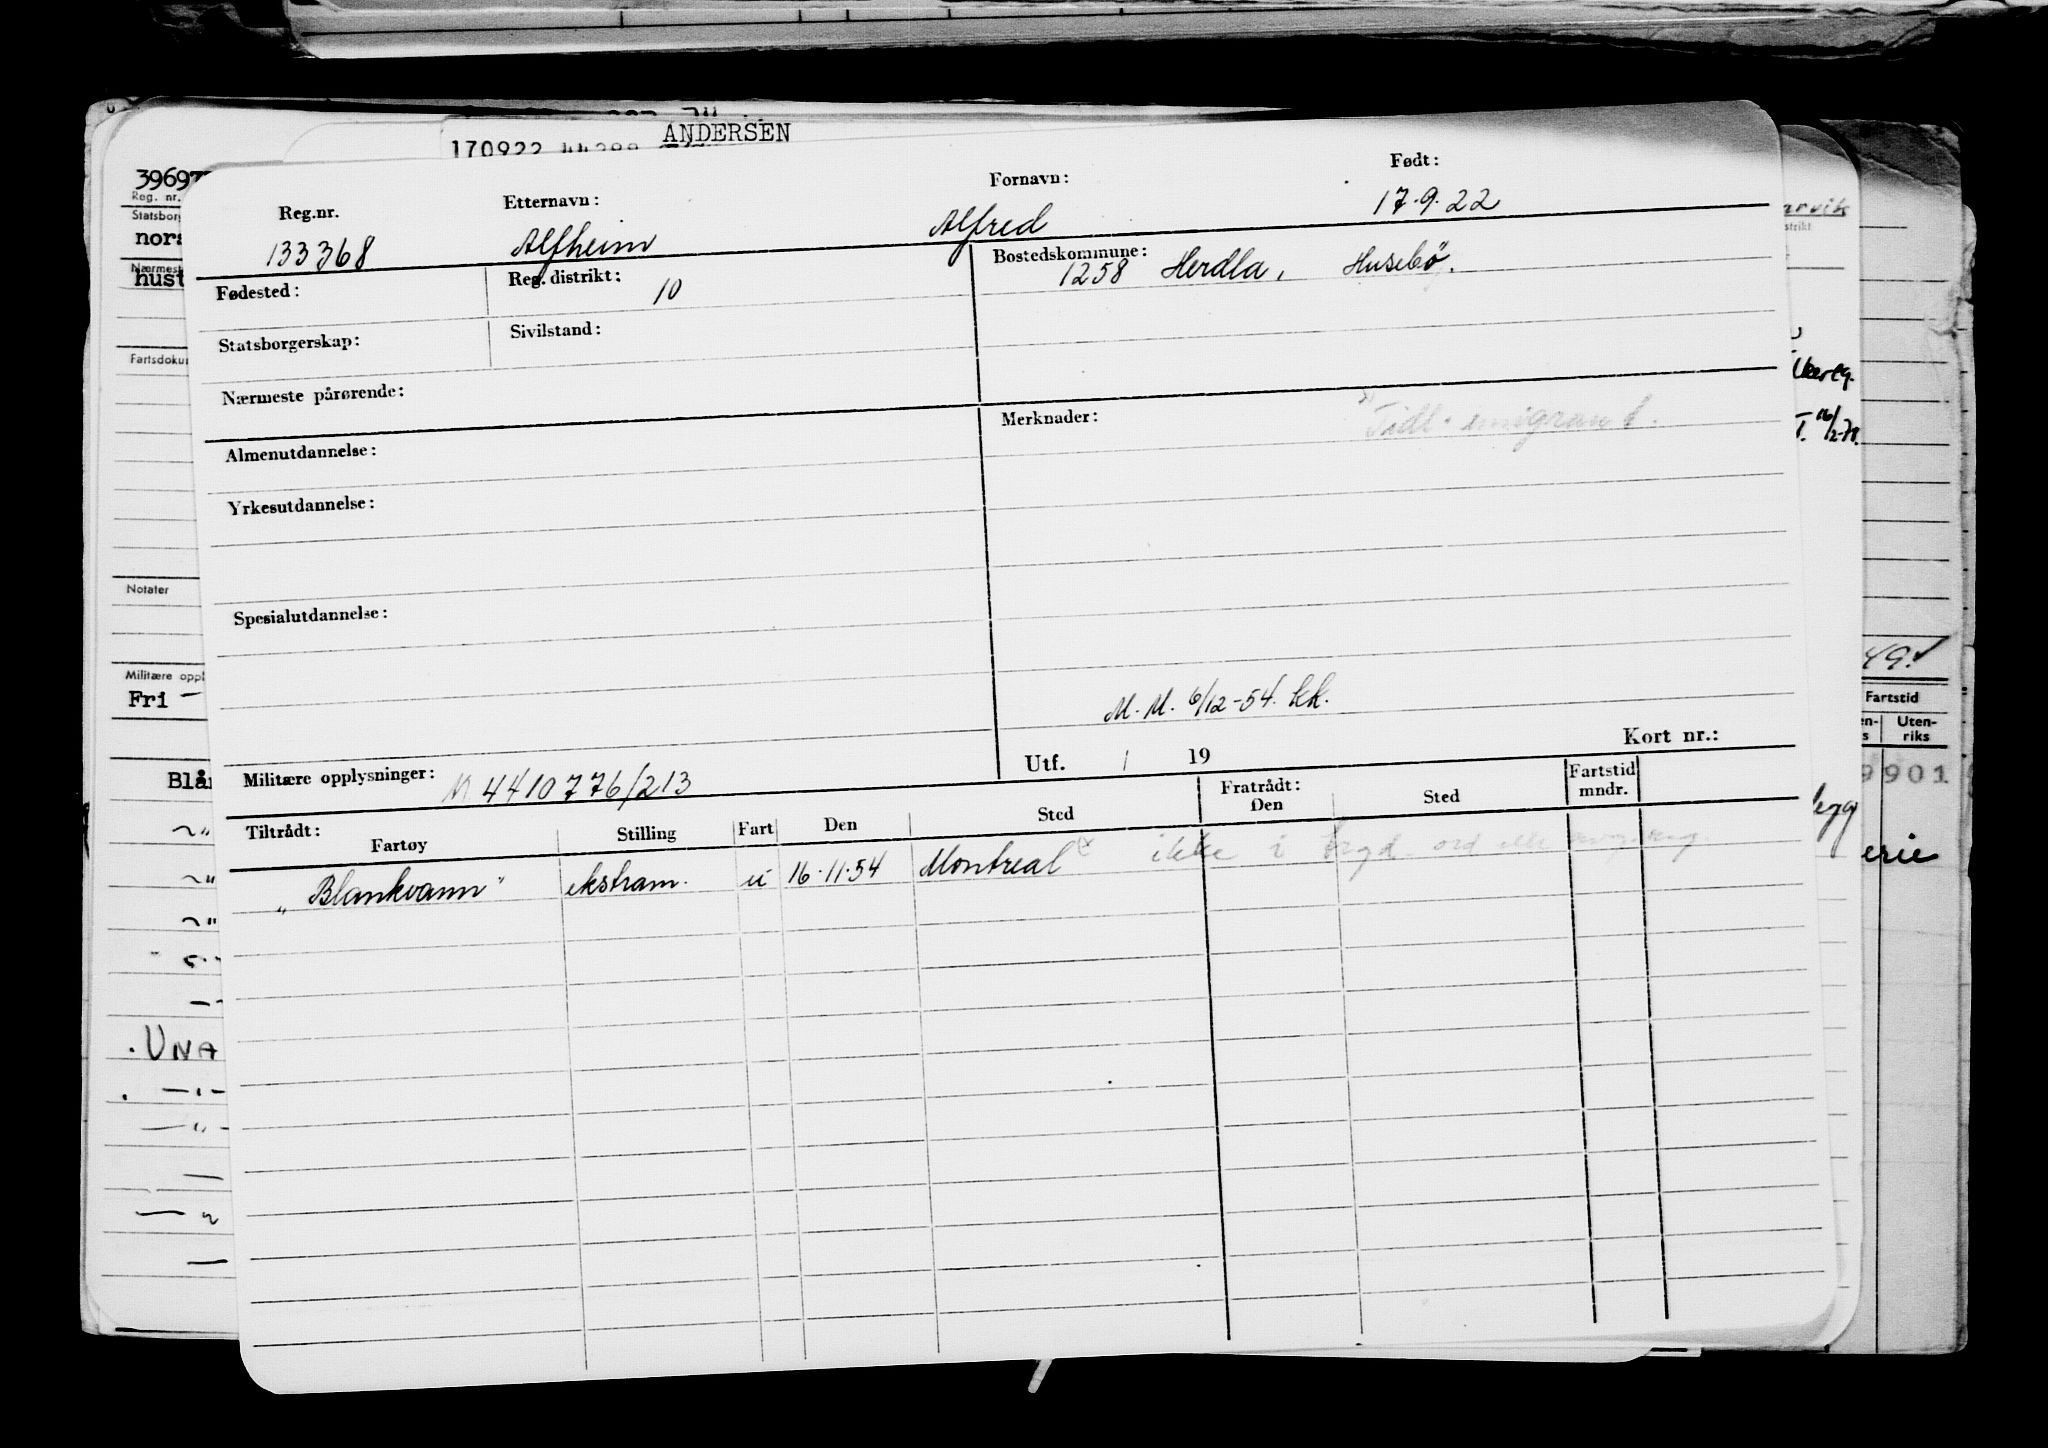 ANDERSEN
170922
Reg.nr. Etternavn: Fornavn: Født:
133368 Alfheim Alfred 17.9.22
Fødested: Reg. distrikt: 10 Bostedskommune: 1258 Herdla, Husebö.
Statsborgerskap: Sivilstand:
Nærmeste pårørende:
Merknader: Tidl. emigrant.
Almenutdannelse:
Yrkesutdannelse:
Spesialutdannelse:
M.M. 6/12-54. kk.
Utf. / 19 Kort nr.:
Militære opplysninger: M 4410776/213
Tiltrådt: Fratrådt: Fartstid
Fartøy Stilling Fart Den Sted Den Sted mndr.
"Blankvann" ekstram. u 16.11.54 Montreal ikke i
Reg. nr.
Nærmest
Notater
Fri -
Blå
UNA
49.
Fartstid
Uten-
riks
901